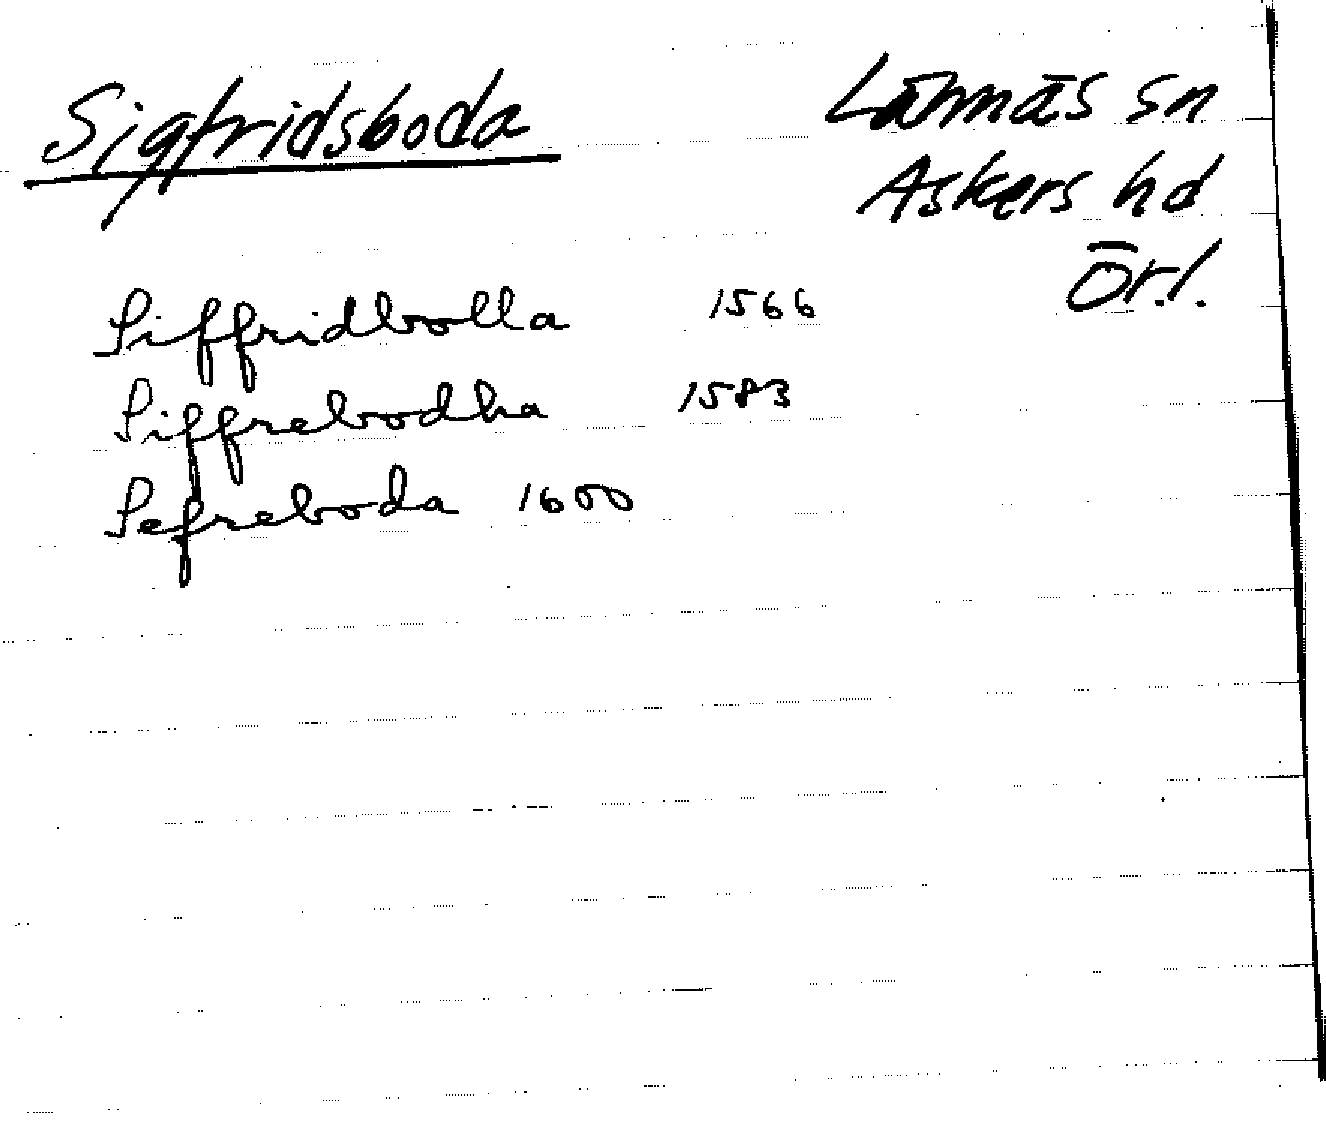 Sigfridsboda
Lännäs sn
Askers hd
Ör.l.
Siffridbolla 1566
Siffrebodha 1583
Sefreboda 1600